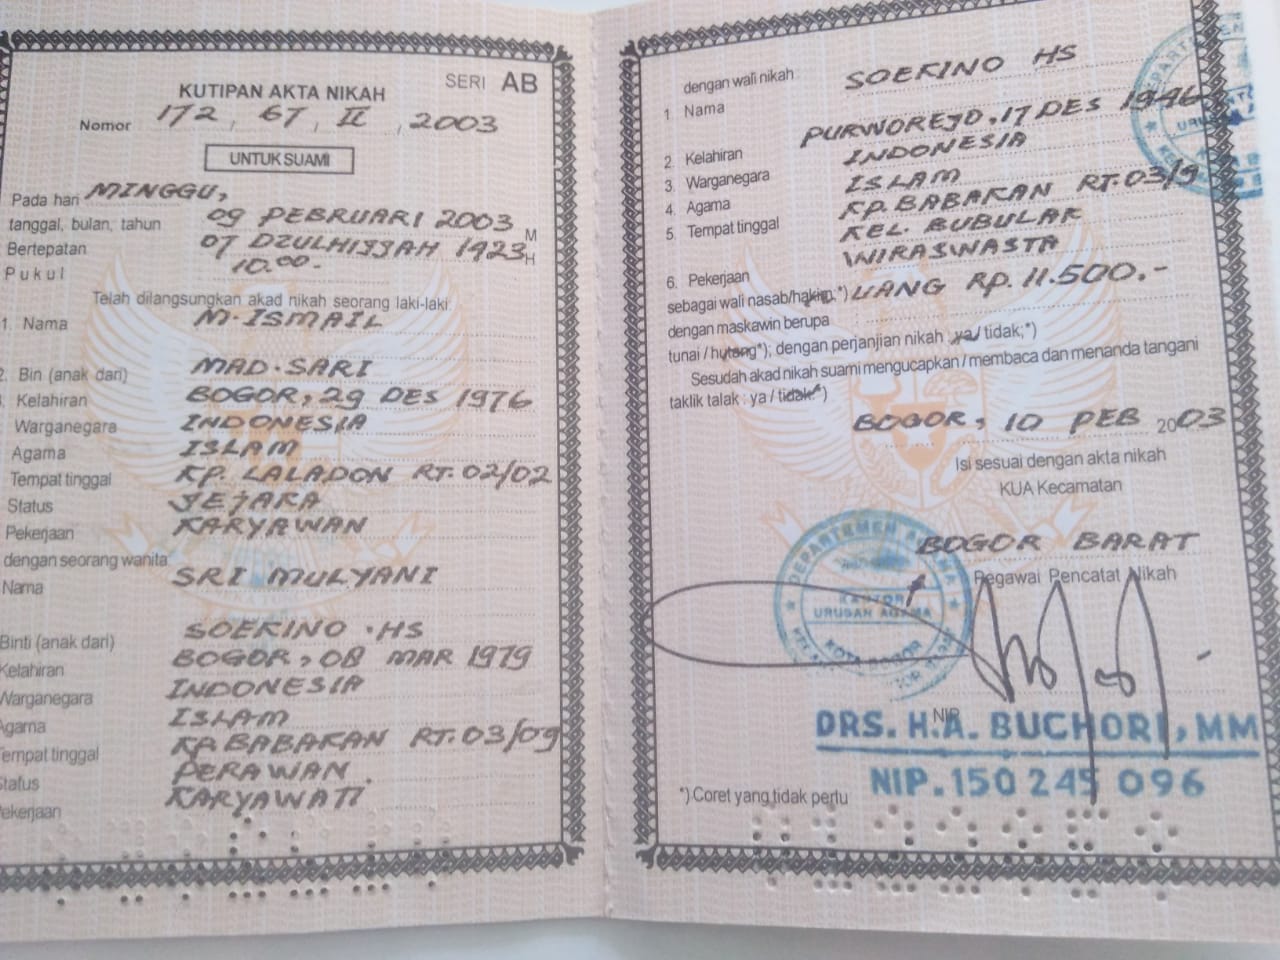 SERI AB
KUTIPAN AKTA NIKAH
Nomor 172, 67, II, 2003
UNTUK SUAMI
Pada hari MINGGU,
tanggal, bulan, tahun 09 PEBRUARI 2003 M
Bertepatan 07 DZULHIJJAH 1423 H
Pukul 10.00.-
Telah dilangsungkan akad nikah seorang laki-laki:
1. Nama M. ISMAIL
2. Bin (anak dari) MAD. SARI
Kelahiran BOGOR, 29 DES 1976
Warganegara INDONESIA
Agama ISLAM
Tempat tinggal KP. LALADON RT. 02/02
Status JEJAKA
Pekerjaan KARYAWAN
dengan seorang wanita
Nama SRI MULYANI
Binti (anak dari) SOEKINO. HS
Kelahiran BOGOR, 08 MAR 1979
Warganegara INDONESIA
Agama ISLAM
Tempat tinggal KP. BABAKAN RT. 03/09
Status PERAWAN.
Pekerjaan KARYAWATI
dengan wali nikah:
1 Nama SOEKINO HS
2. Kelahiran PURWOREJO, 17 DES 1946
3. Warganegara INDONESIA
4. Agama ISLAM
5. Tempat tinggal KP. BABAKAN RT. 03/9
KEL. BUBULAK
6. Pekerjaan WIRASWASTA
sebagai wali nasab/hakim;*)
dengan maskawin berupa UANG RP. 11.500.-
tunai / hutang*); dengan perjanjian nikah : ya / tidak;*)
Sesudah akad nikah suami mengucapkan / membaca dan menanda tangani
taklik talak : ya / tidak*)
BOGOR, 10 PEB 2003
Isi sesuai dengan akta nikah
KUA Kecamatan
BOGOR BARAT
Pegawai Pencatat Nikah
DEPARTEMEN AGAMA
KANTOR
URUSAN AGAMA
KOTA BOGOR
NIP.
DRS. H.A. BUCHORI, MM
NIP. 150 245 096
*) Coret yang tidak perlu